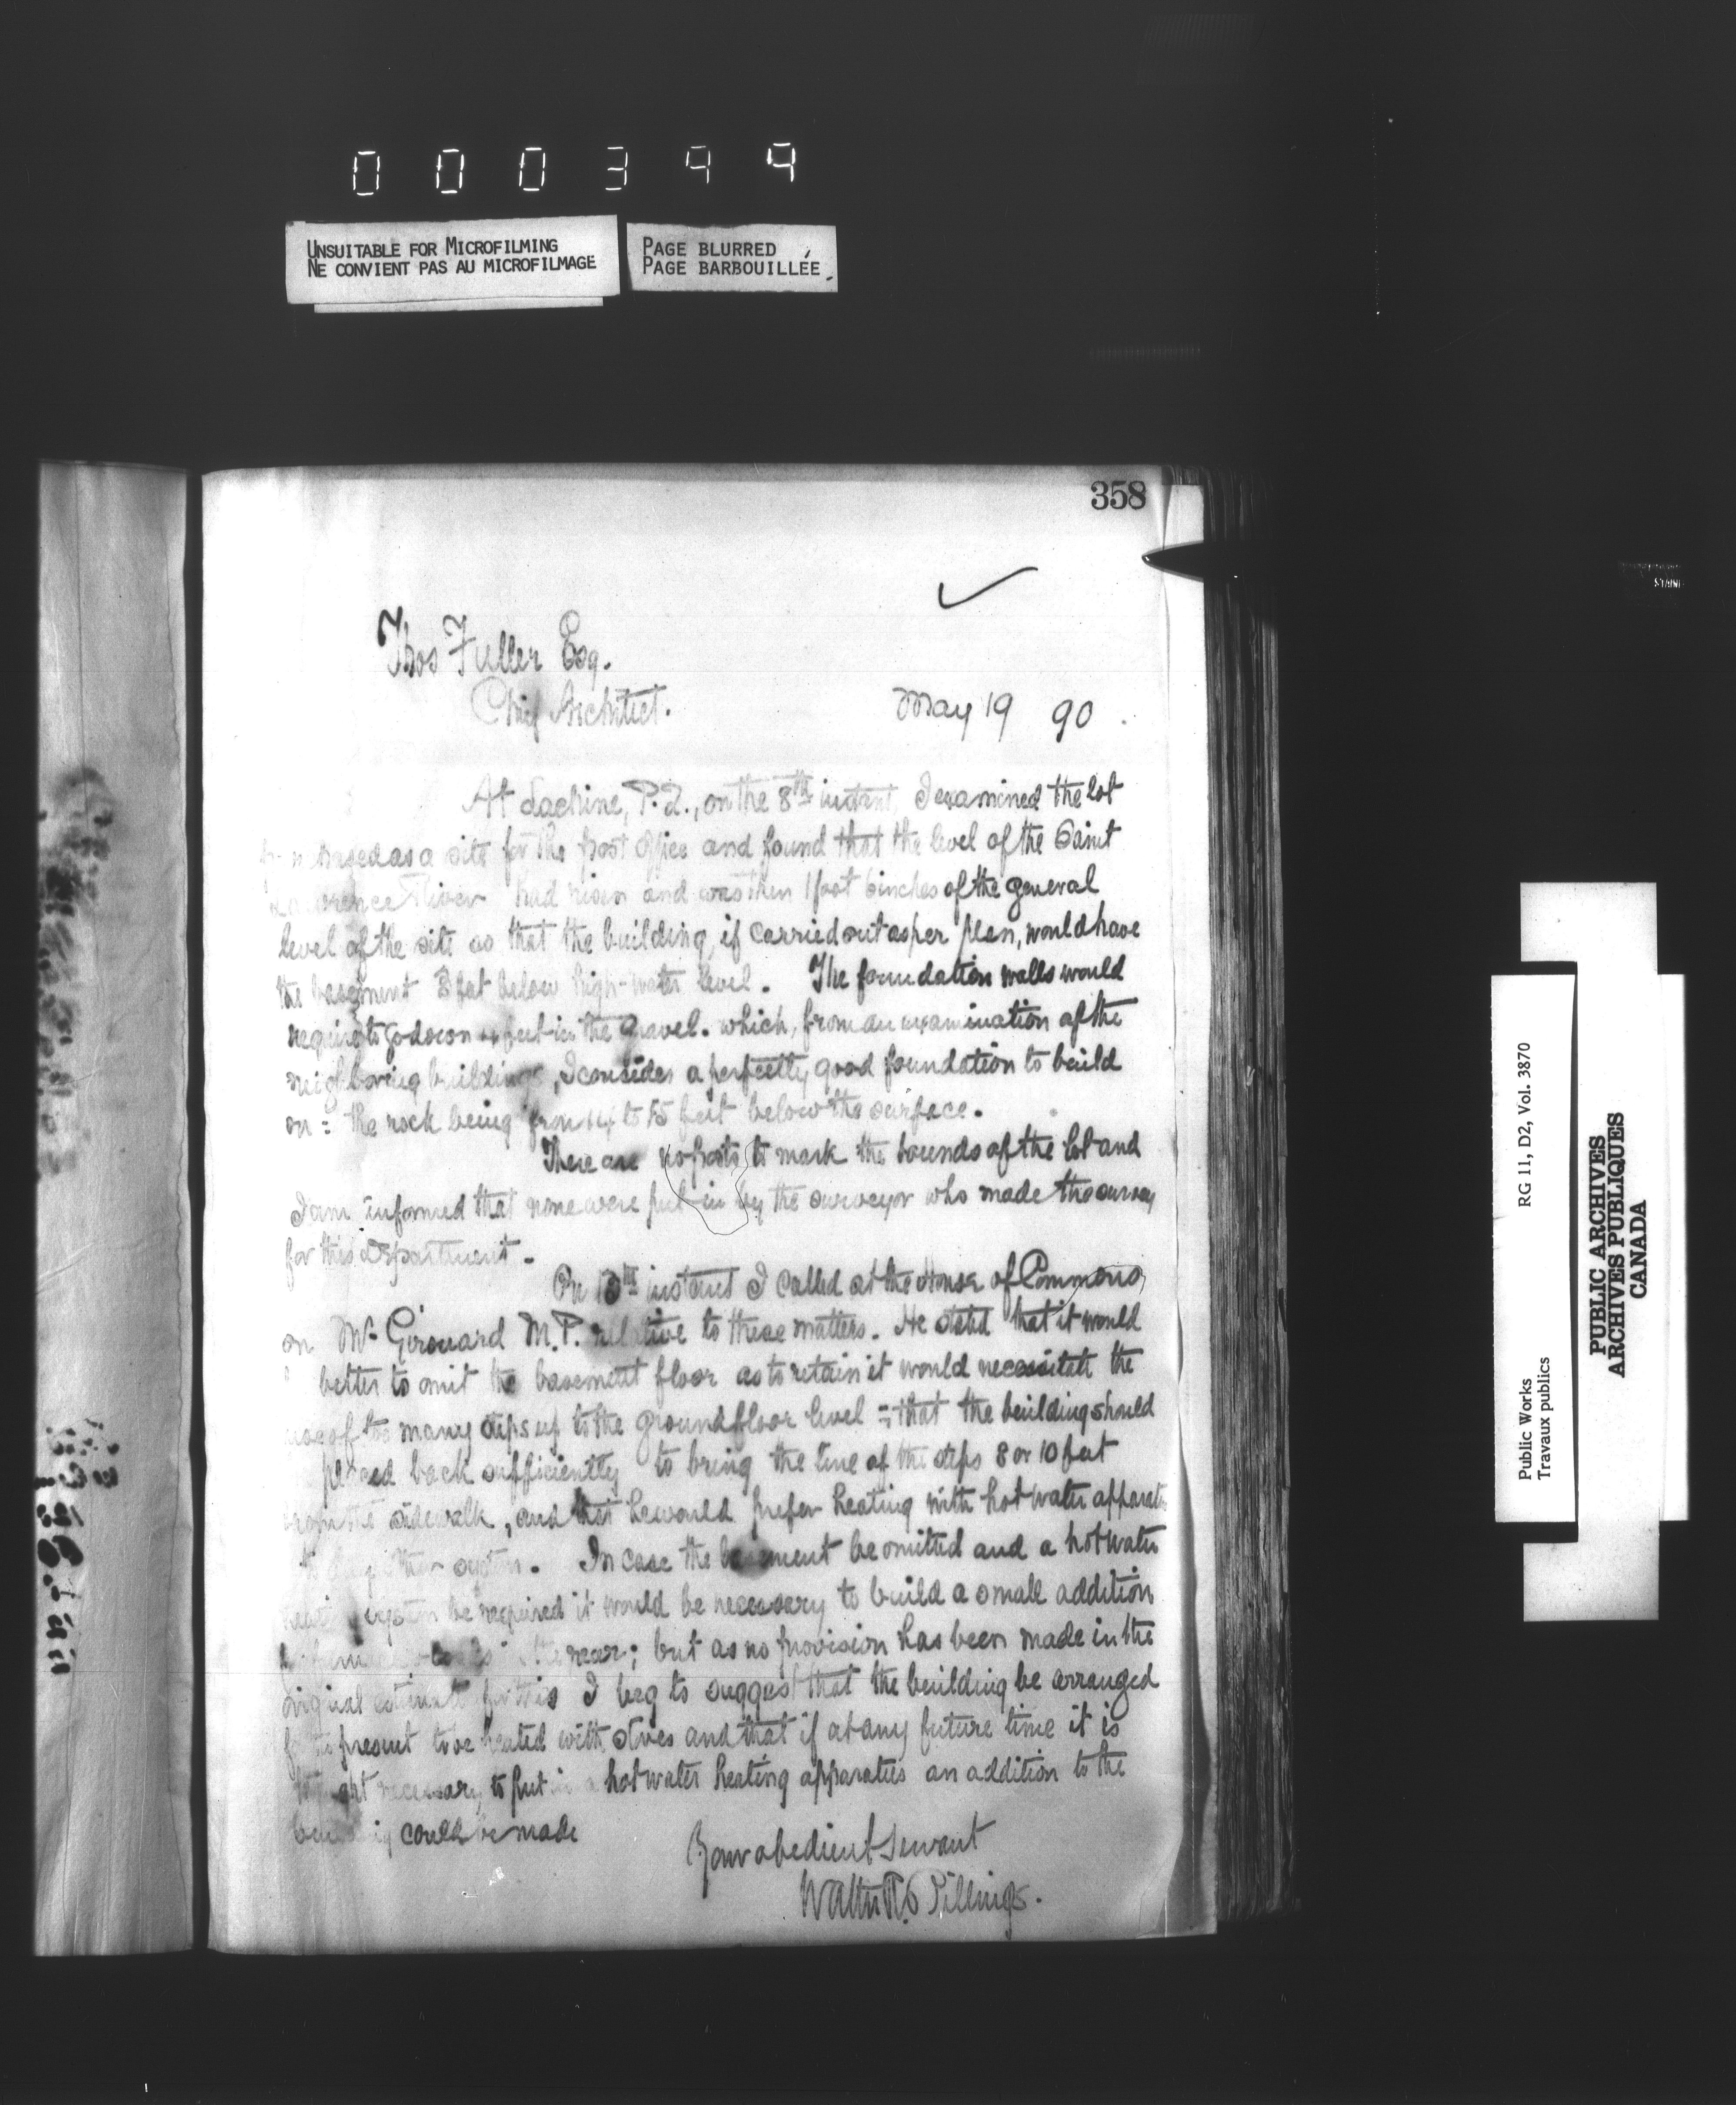 000394
UNSUITABLE FOR MICROFILMING
NE CONVIENT PAS AU MICROFILMAGE
PAGE BLURRED
PAGE BARBOUILLÉE
358
Thos Fuller Esq.
Chief Architect.
May 19 90
At Lachine, P.Q., on the 8th instant, I examined the lot
as a site for the post office and found that the level of the Saint
River had risen and was then 1 foot 6 inches of the general
level of the site so that the building, if carried out as per plan, would have
the basement 8 feet below high-water level. The foundation walls would
require to go down feet in the gravel. which, from an examination of the
neighboring buildings, I consider a perfectly good foundation to build
on = the rock being from 14 to 15 feet below the surface.
There are no posts to mark the bounds of the lot and
I am informed that none were put in by the surveyor who made the survey
for this Department.
On 13th instant I called at the House of Commons,
on Mr Girouard M.P. relative to these matters. He stated that it would
better to omit the basement floor as to retain it would necessitate the
use of too many steps up to the ground floor level = that the building should
placed back sufficiently to bring the line of the steps 8 or 10 feet
from the sidewalk, and that he would prefer heating with hot water apparatus
to any other system. In case the basement be omitted and a hot water
system be required it would be necessary to build a small addition
the rear; but as no provision has been made in the
original estimate for this I beg to suggest that the building be arranged
present to be heated with stoves and that if at any future time it is
thought necessary to put in a hot water heating apparatus an addition to the
building could be made
Your obedient servant
Walter R. Billings.
Public Works
Travaux publics
RG 11, D2, Vol. 3870
PUBLIC ARCHIVES
ARCHIVES PUBLIQUES
CANADA